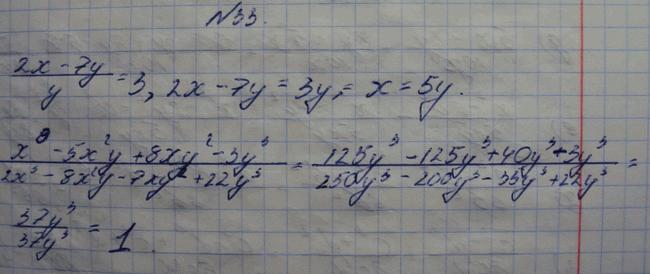 №33.
(2x - 7y)/y = 3, 2x - 7y = 3y, = x = 5y.
(x³ - 5x²y + 8xy² - 3y³)/(2x³ - 8x²y - 7xy² + 22y³) = (125y³ - 125y³ + 40y³ - 3y³)/(250y³ - 200y³ - 35y³ + 22y³) =
37y³/37y³ = 1